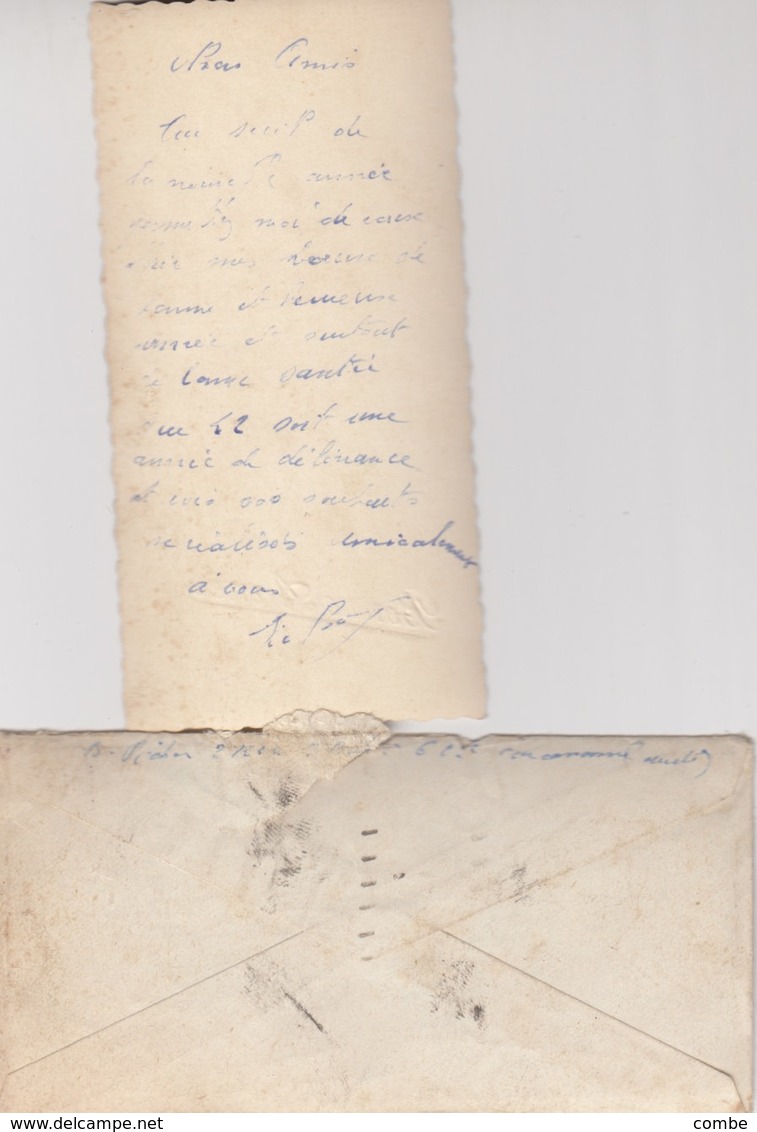 Mes Amis
Au seuil de
la nouvelle année
permettez moi de vous
offrir mes voeux de
bonne et heureuse
année et surtout
de bonne santé
que 42 soit une
année de délivrance
et vois vos souhaits
se réalisés amicalement
à vous
delcampe.net
combe